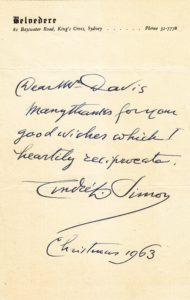 Belvedere
81 Bayswater Road, King's Cross, Sydney . . . . . . Phone 31-7778
Dear Mr Davis
Many thanks for your
good wishes which I
heartily reciprocate.
André L. Simon
Christmas 1963